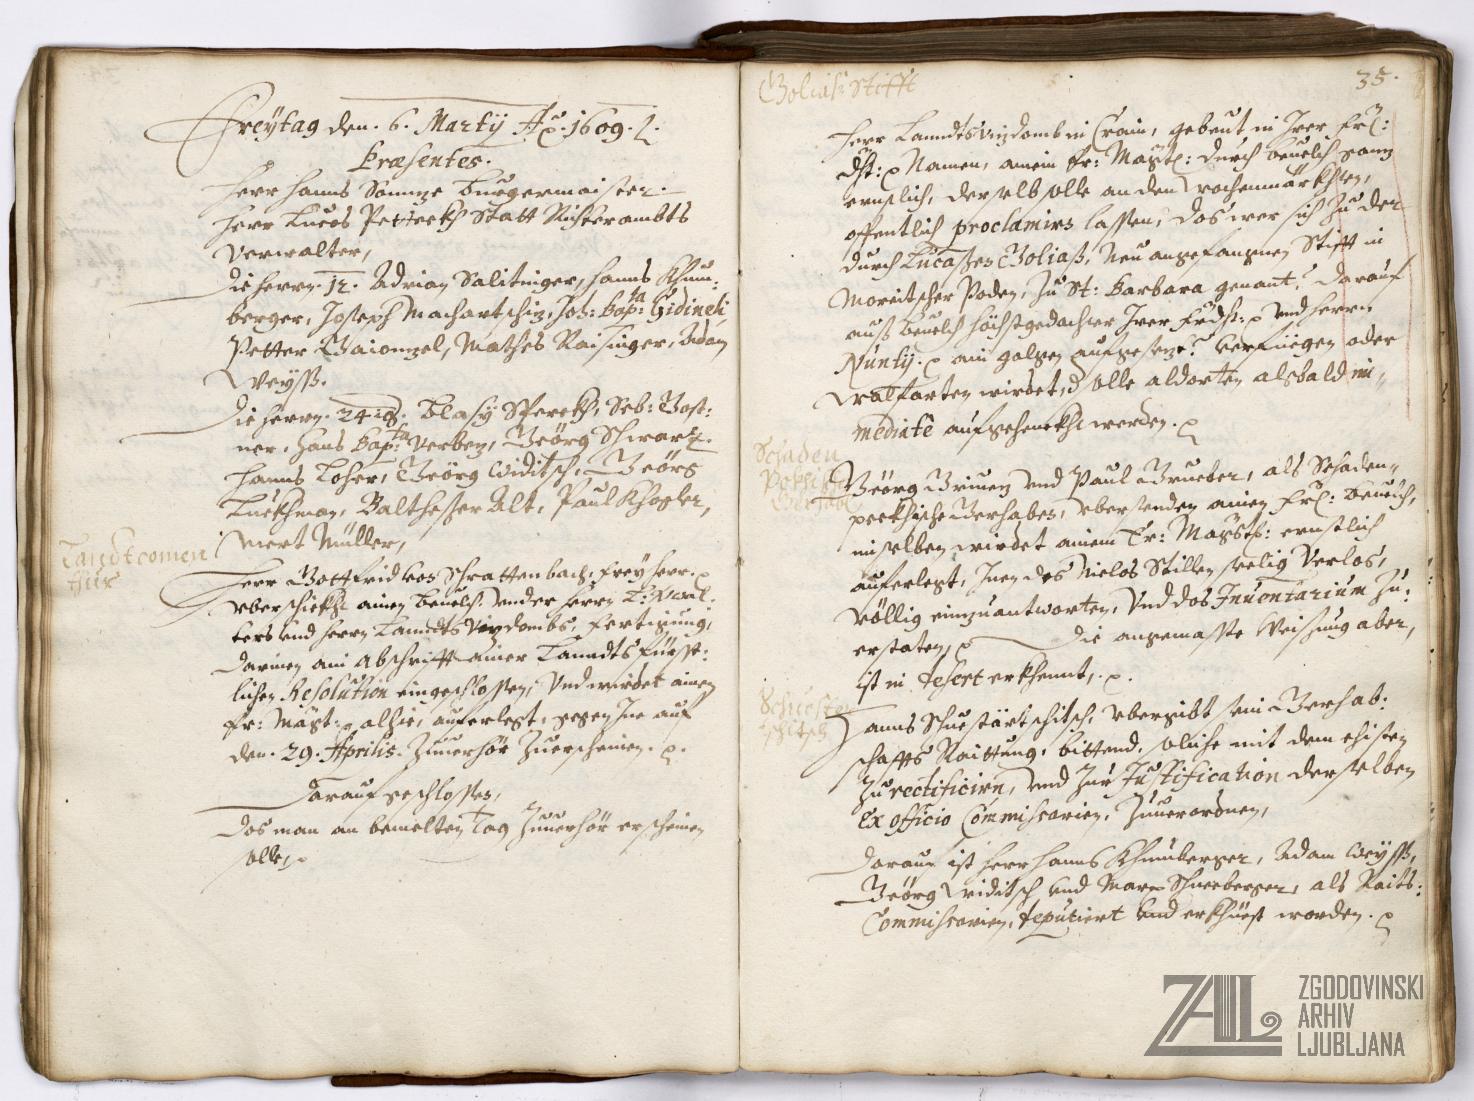 Freÿtag den. 6. Martÿ Aᵒ. 1609. L.
Præsentes.
Herr Hanns Sonnze Burgermaister.
Herr Lucas Petterkh Statt Richterambts
Verwalter,
Die Herrn. 12. Adrian Salitinger, Hanns Khum:
berger, Joseph Machartschiz, Joh: Bapᵗᵃ: Gidineli,
Petter Gaionzel, Mathes Raisinger, Adam
Weÿss.
Die Herrn. 24ig. Blasy Sterckh, Seb: Posst:
ner, Hans Bapᵗᵃ: Verben, Geörg Schwarz.
Hanns Loher, Geörg Widitsch, Geörg
Lukhman, Balthesser Alt, Paul Khogler,
Mert Müller,
Landtcomen
thur
Herr Gottfrid von Schrattenbach, freÿherr. p
yberschickht ainen beuelch under herrn L: Verwal:
ters und herrn Lanndts Vizdombs, fertigung,
darinen ain Abschrifft ainer Lanndts fürst:
lichen Resolution eingeschlossen, Und wirdet ainem
Er: Magt: p alhie, auferlegt, gegen Ine auf
den. 29. Aprilis. Zuuerhör Zuerscheinen. p.
Darauf geschlossen,
Das man an bemelten Tag Zuuerhör erscheinen
solle, p
35.
Golias Stifft
Herr Lanndtsvizdomb in Crain, gebeut in Irer Frl:
Dht: p Namen, ainem Er: Magist: durch beuelch ganz
ernstlich, derselb solle an den Wochenmärkhten,
offentlich proclamirn lassen, das wer sich Zu der
durch Lucassen Goliass, Neu angefangnen Stifft in
Moreitscher Poden, Zu St: Barbara genant? darauf
auss beuelch höchstgedachter Irer Frdht: p und herrn
Nuntÿ. p ain galgen aufgesezt? verfuegen oder
walfarten wirdet, solle aldorten alsbald im-
mediatè aufgehenckht werden. p
Schaden
Geörg Griueng und Paul Grueber, als Schaden-
peckhische Gerhaben, ybersenden ainen Frl: beuelch,
in selben wirdet ainem Er: Magist: ernstlich
auferlegt, Inen des Niclas Stillen seelig Verlas,
völlig einzuantworten, Und das Inuentarium Zu:
erstaten, p die angemasste Weisung aber,
ist in desert erkhennt, p.
Schuester
tschitsch
Hanns Schuestärtschitsch, ybergibt sein Gerhab:
schaffts Raittung, bittend, solche mit dem ehisten
Zu rectificirn, und Zur Justification derselben
Ex officio Commissarien, Zuuerordnen,
Darauf ist Herr Hanns Khumberger, Adam Weÿss,
Geörg Widitsch und Marx Schneeberger, als Raits:
Commissarien, deputiert und erkhiest worden. p
ZAL ZGODOVINSKI
ARHIV
LJUBLJANA